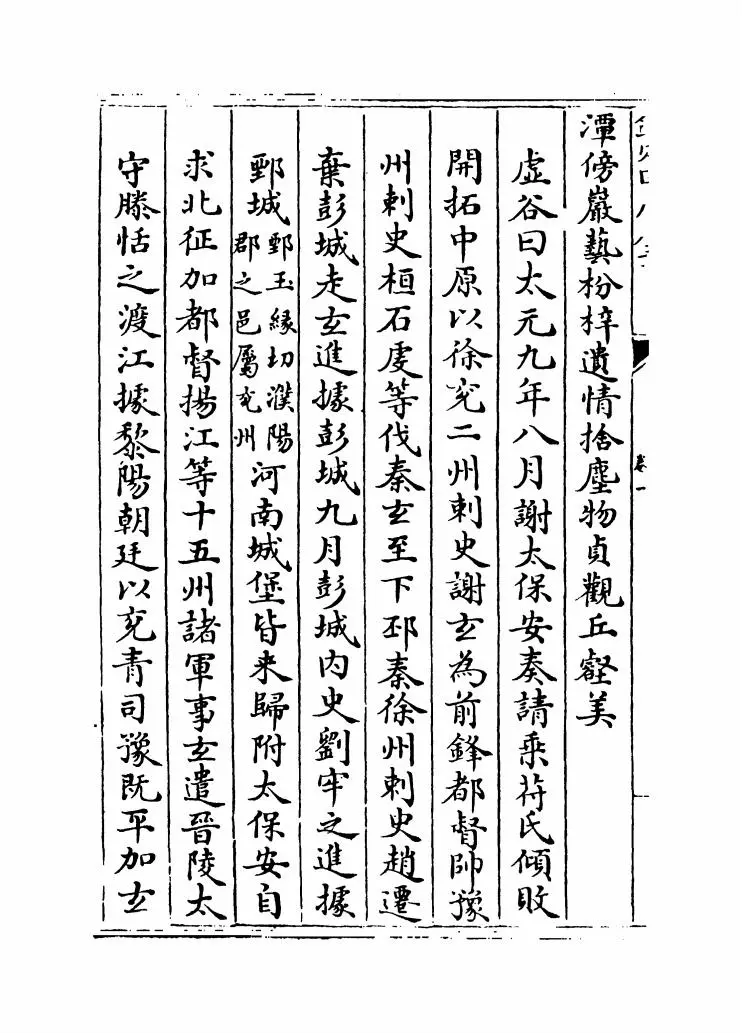 卷一
潭傍巖藝枌梓遺情捨塵物貞觀丘壑美
虛谷曰太元九年八月謝太保安奏請乘苻氏傾敗
開拓中原以徐兗二州刺史謝玄為前鋒都督帥豫
州刺史桓石虔等伐秦玄至下邳秦徐州刺史趙遷
棄彭城走玄進據彭城九月彭城内史劉牢之進據
鄄城鄄玉緣切濮陽郡之邑屬兗州河南城堡皆来歸附太保安自
求北征加都督揚江等十五州諸軍事玄遣晉陵太
守滕恬之渡江據黎陽朝廷以兗青司豫既平加玄